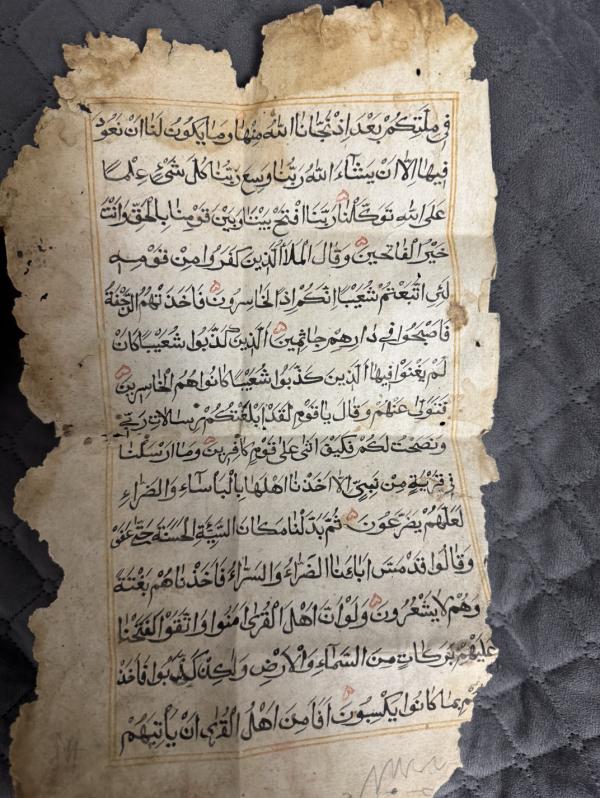 في ملتكم بعد اذ نجانا الله منها وما يكون لنا ان نعود
فيها الا ان يشاء الله ربنا وسع ربنا كل شيء علما
على الله توكلنا ربنا افتح بيننا وبين قومنا بالحق وانت
خير الفاتحين وقال الملأ الذين كفروا من قومه
لئن اتبعتم شعيبا انكم اذا لخاسرون فاخذتهم الرجفة
فاصبحوا في دارهم جاثمين الذين كذبوا شعيبا كان
لم يغنوا فيها الذين كذبوا شعيبا كانوا هم الخاسرين
فتولى عنهم وقال يا قوم لقد ابلغتكم رسالات ربي
ونصحت لكم فكيف اسى على قوم كافرين وما ارسلنا
في قرية من نبي الا اخذنا اهلها بالباساء والضراء
لعلهم يضرعون ثم بدلنا مكان السيئة الحسنة حتى عفوا
وقالوا قد مس اباءنا الضراء والسراء فاخذناهم بغتة
وهم لا يشعرون ولو ان اهل القرى امنوا واتقوا لفتحنا
عليهم بركات من السماء والارض ولكن كذبوا فاخذ
هم بما كانوا يكسبون افامن اهل القرى ان ياتيهم